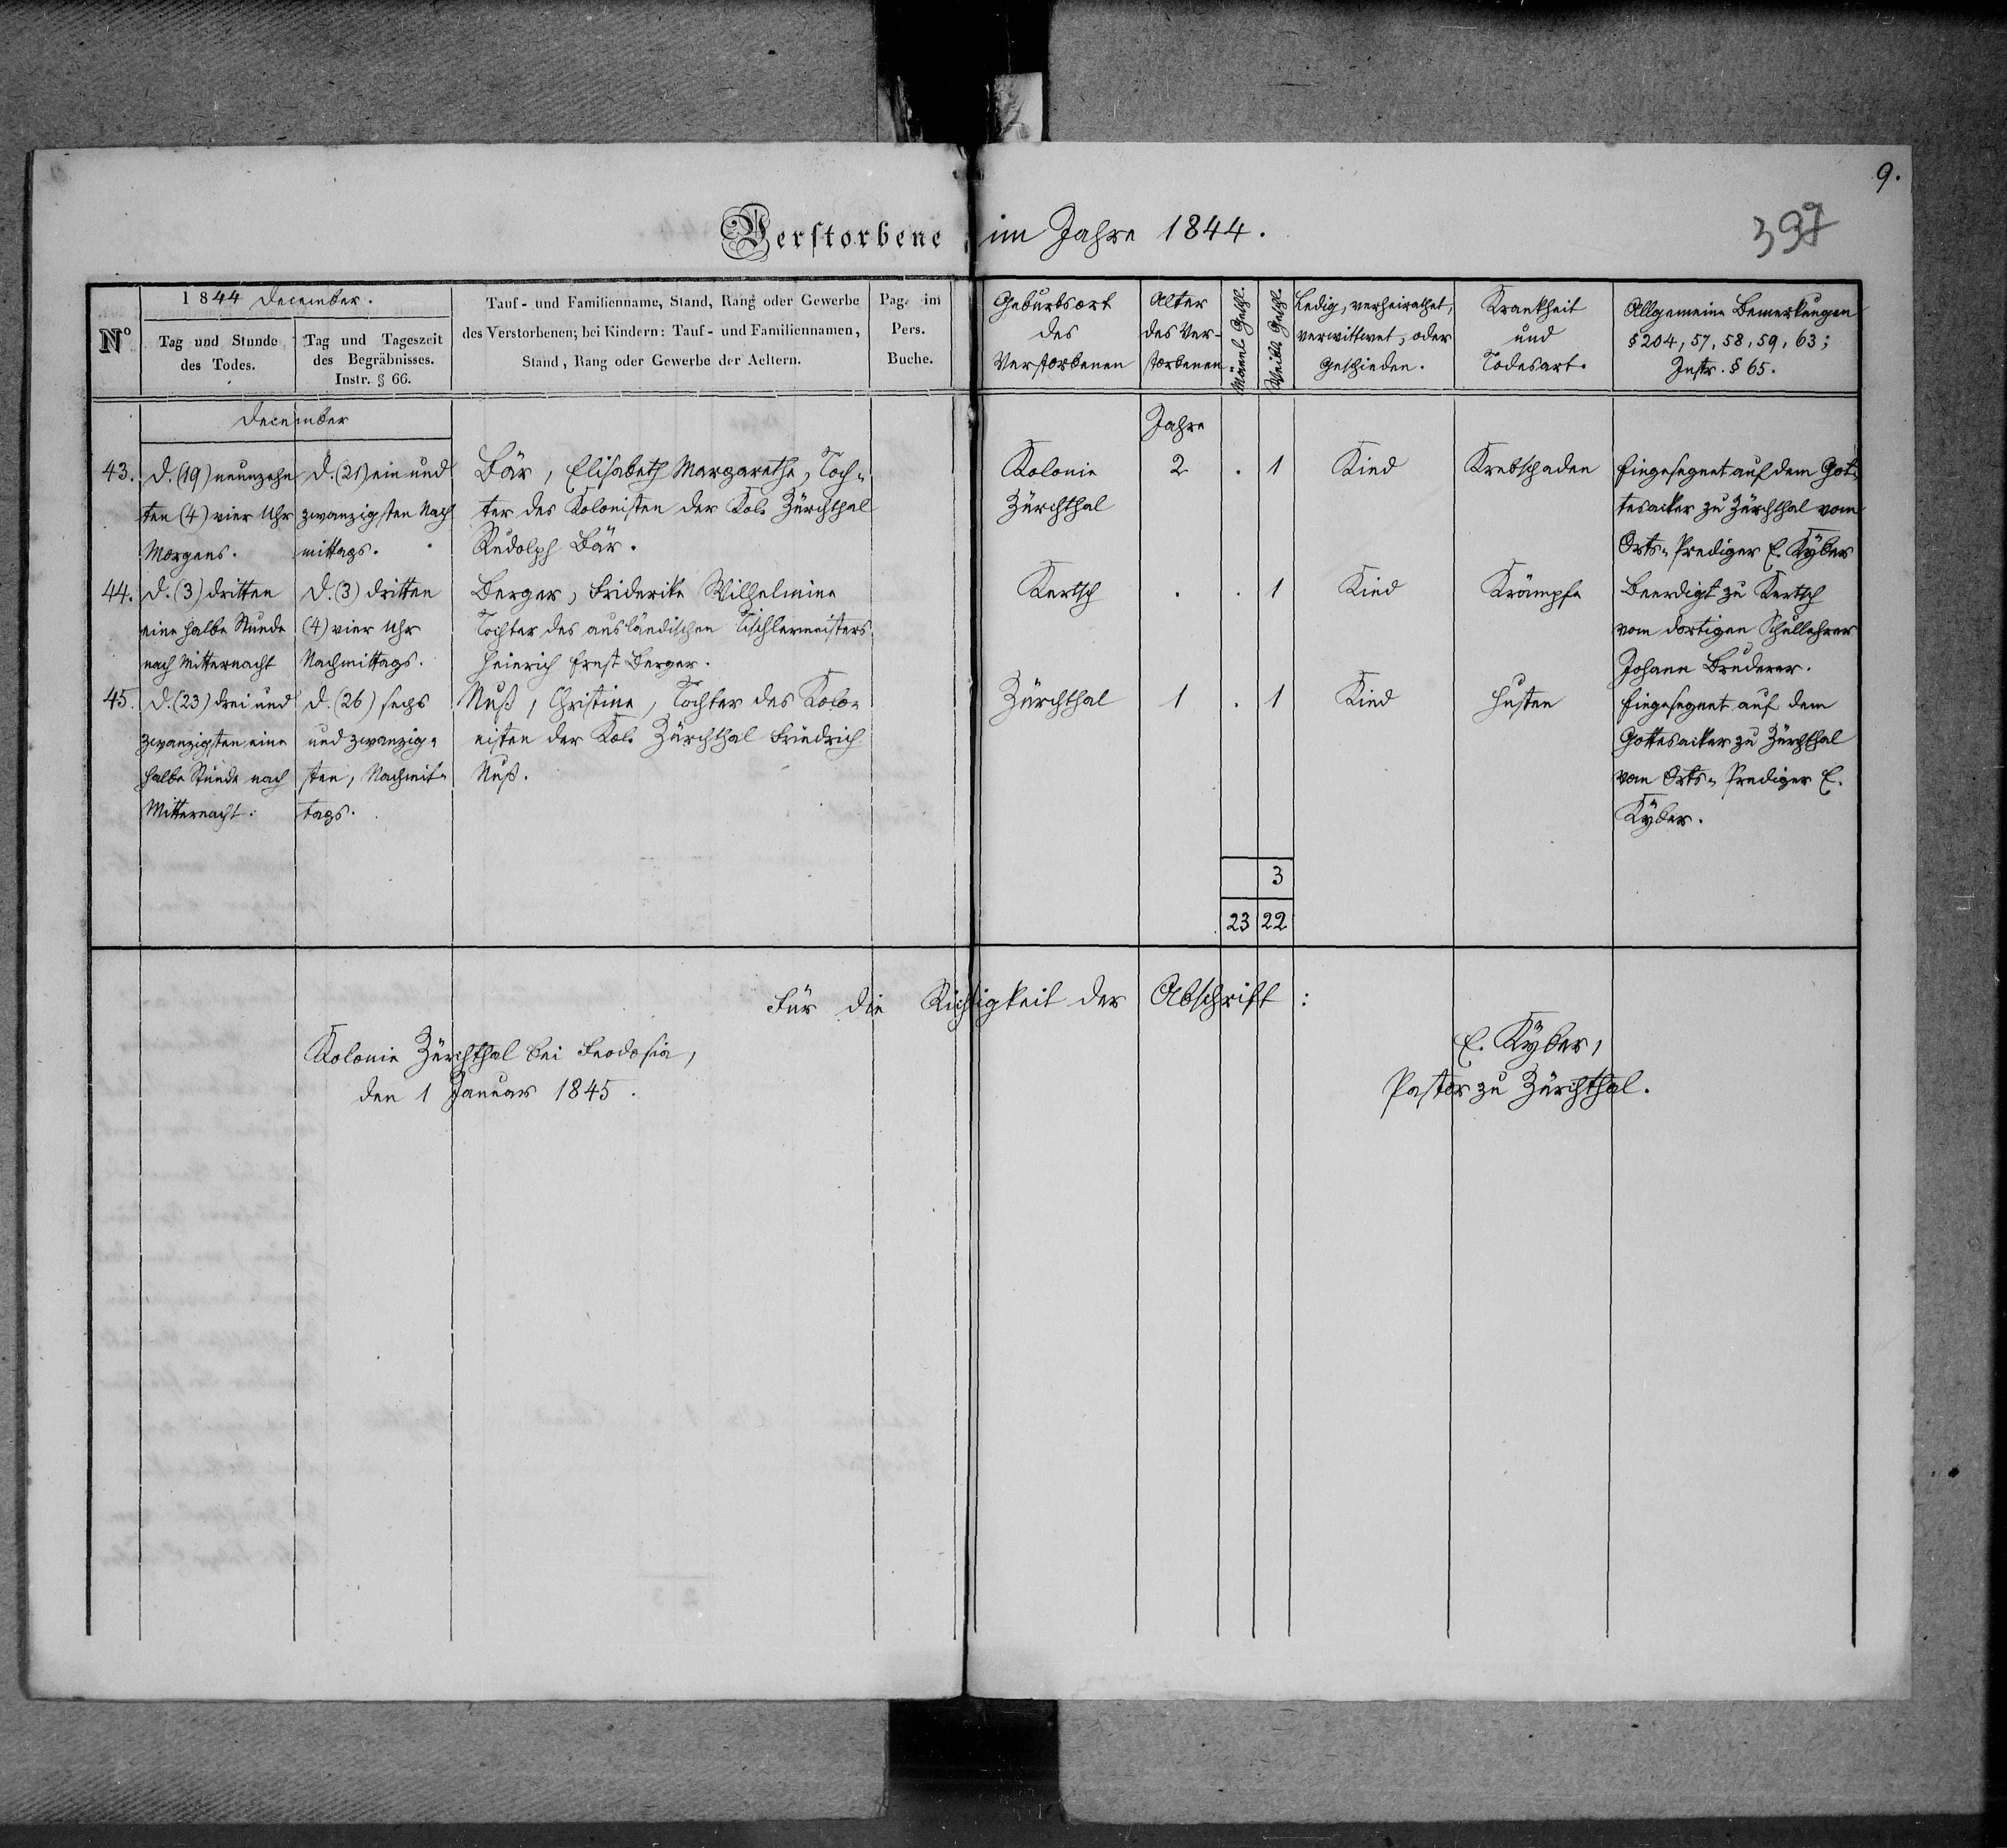 9.
397
Verstorbene im Jahre 1844.
Nº
1844 December.
Tag und Stunde
des Todes.
Tag und Tageszeit
des Begräbnisses.
Instr. § 66.
Tauf- und Familienname, Stand, Rang oder Gewerbe
des Verstorbenen; bei Kindern: Tauf- und Familiennamen,
Stand, Rang oder Gewerbe der Aeltern.
Page im
Pers.
Buche.
Geburtsort
des
Verstorbenen
Alter
des Ver-
storbenen
Männl. Geschl.
Weibl. Geschl.
Ledig, verheirathet,
verwittwet, oder
Geschieden.
Krankheit
und
Todesart.
Allgemeine Bemerkungen
§ 204, 57, 58, 59, 63;
Instr. § 65.
December
Jahre
43.
d. (19) neunzehn
ten (4) vier Uhr
Morgens.
d. (21) ein und
zwanzigsten Nach
mittags.
Bär, Elisabeth Margarethe, Toch-
ter des Kolonisten der Kol. Zürchthal
Rudolph Bär.
Kolonie
Zürchthal
2
.
1
Kind
Krebschaden
Eingesegnet auf dem Got-
tesacker zu Zürchthal vom
Orts-Prediger E. Kyber
44.
d. (3) dritten
eine halbe Stunde
nach Mitternacht
d. (3) dritten
(4) vier Uhr
Nachmittags.
Berger, Friderike Wilhelmine
Tochter des ausländischen Tischlermeisters
Heinrich Ernst Berger.
Kertsch
.
.
1
Kind
Krämpfe
Beerdigt zu Kertsch
vom dortigen Schullehrer
Johann Bruderer.
45.
d. (23) drei und
zwanzigsten eine
halbe Stunde nach
Mitternacht.
d. (26) sechs
und zwanzig-
sten, Nachmit-
tags.
Nuß, Christine, Tochter des Kolo-
nisten der Kol. Zürchthal Friedrich
Nuß.
Zürchthal
1
.
1
Kind
Husten
Eingesegnet auf dem
Gottesacker zu Zürchthal
vom Orts-Prediger E.
Kyber.
3
23 22
Für die Richtigkeit der Abschrift:
Kolonie Zürchthal bei Feodosia,
den 1 Januar 1845.
E. Kyber,
Pastor zu Zürchthal.